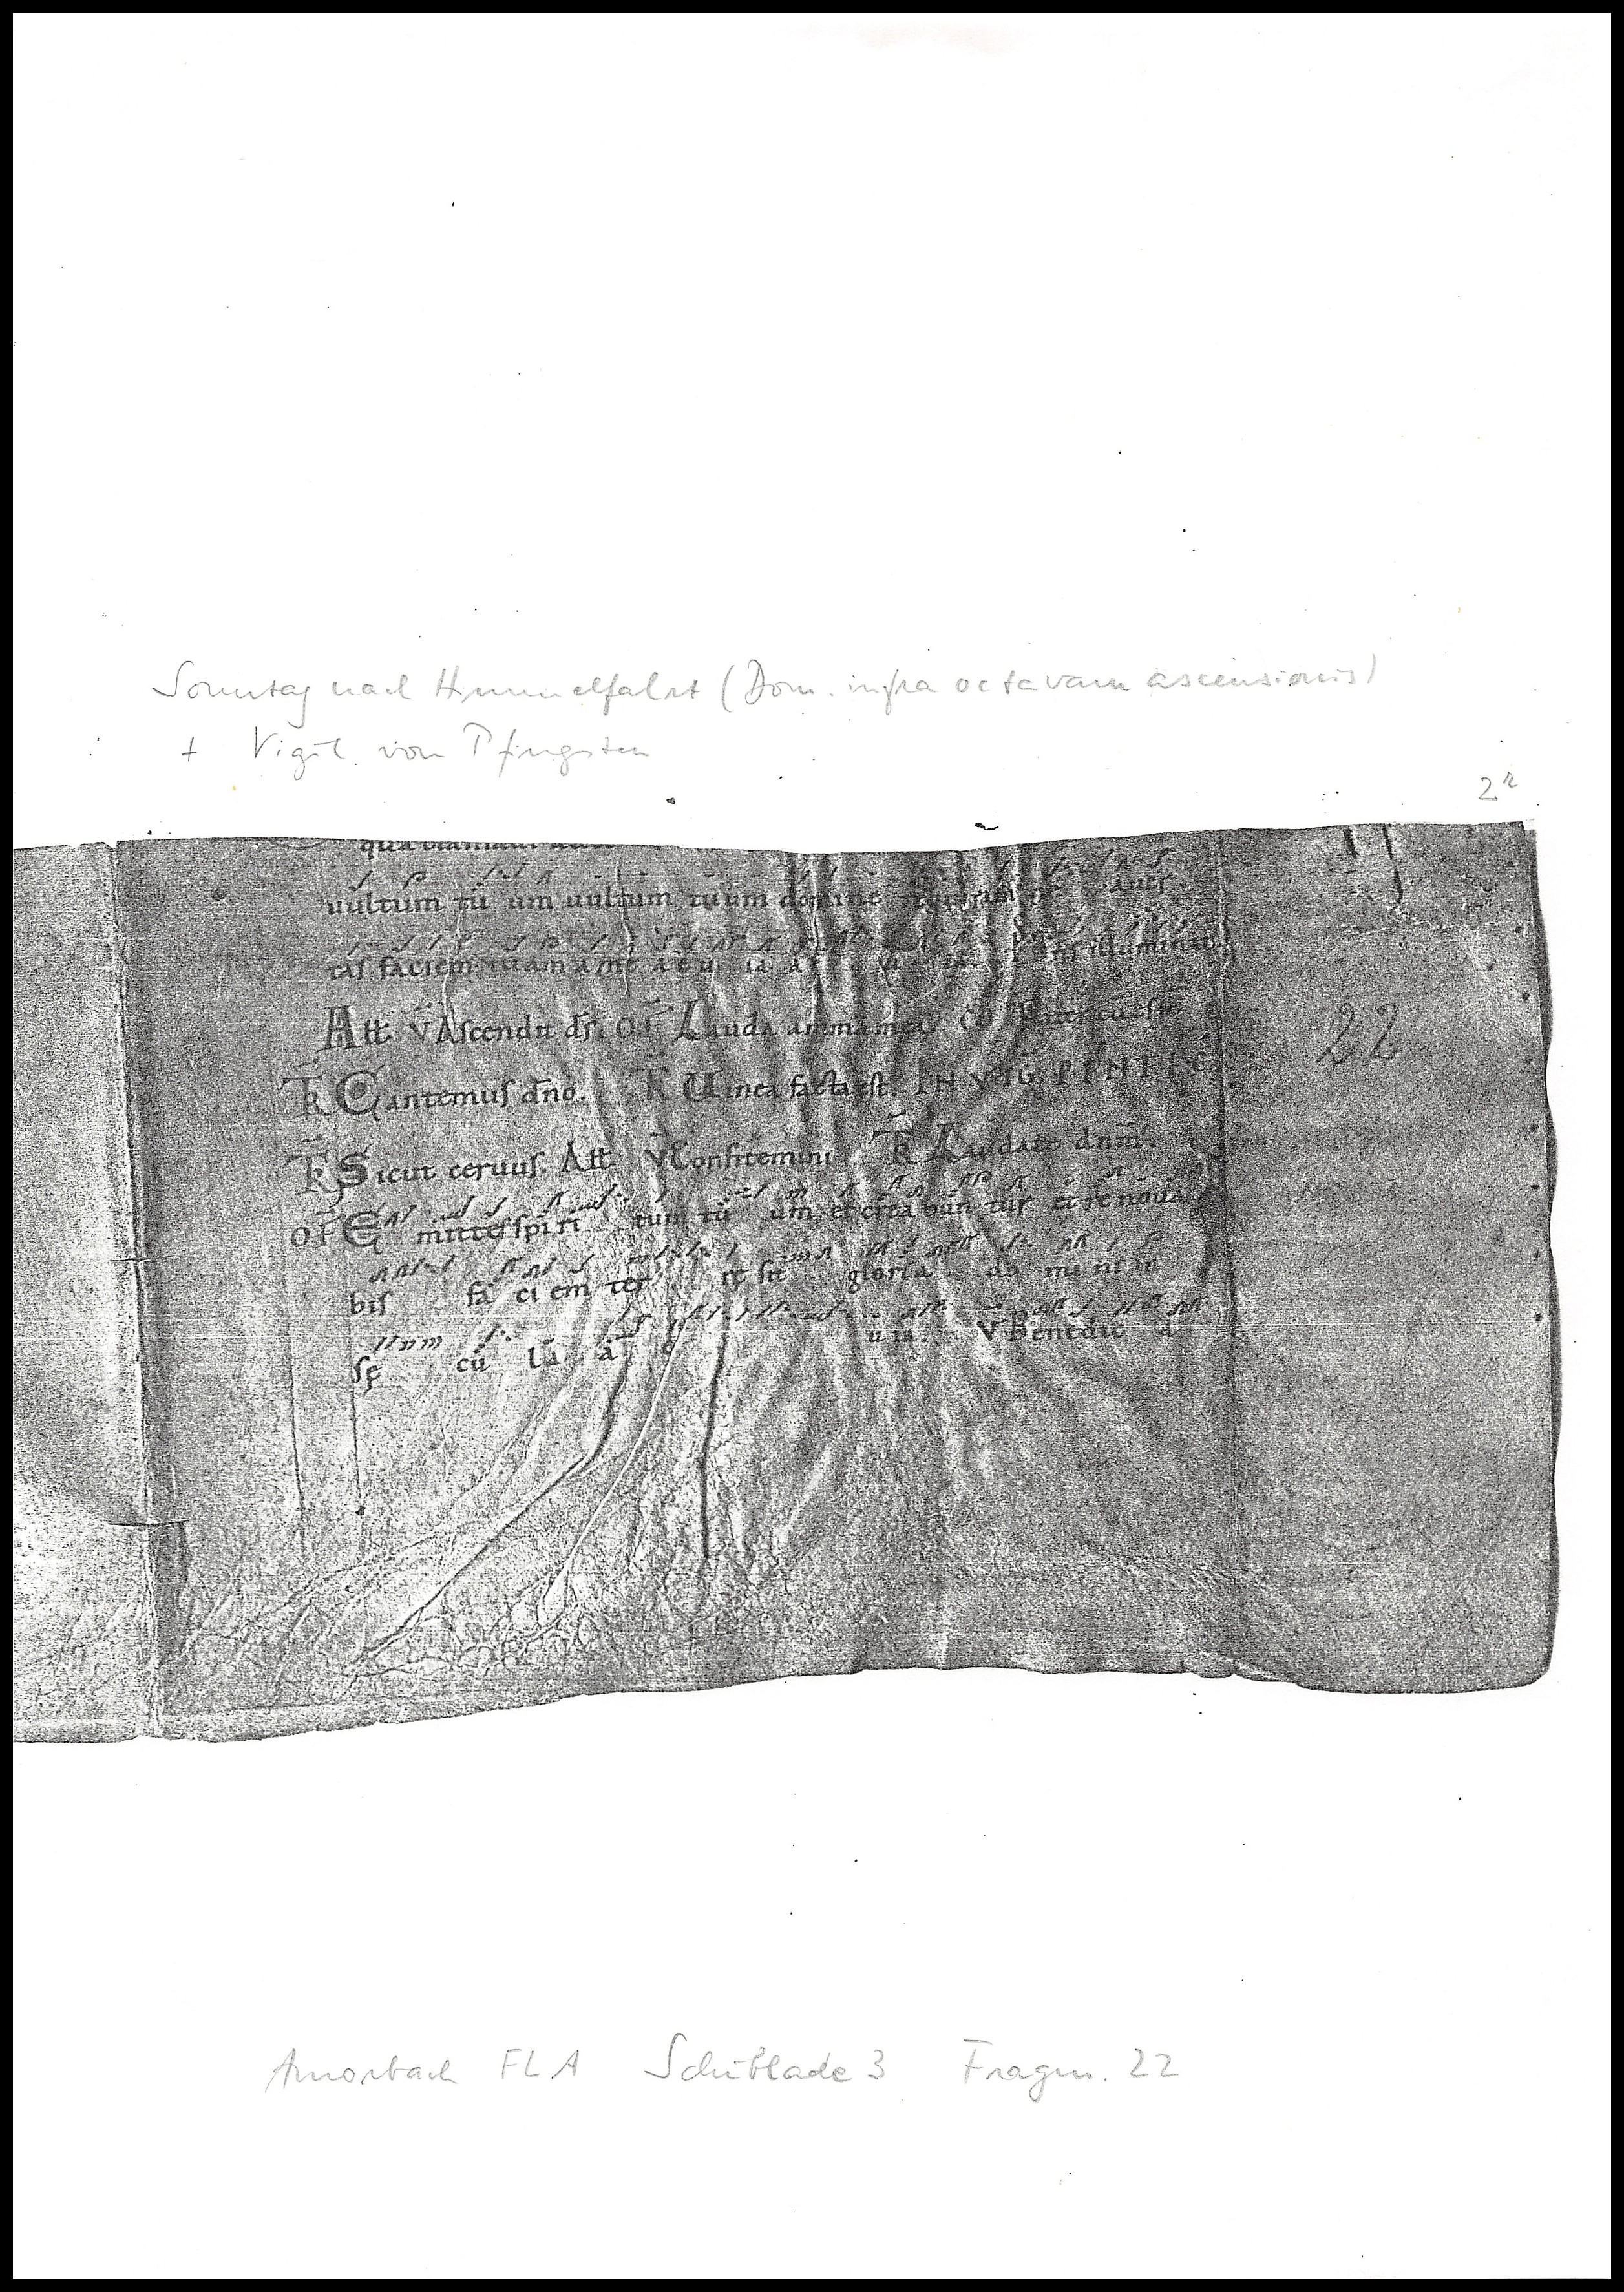 Sonntag nach Himmelfahrt (Dom. infra octavam ascensionis)
+ Vigil von Pfingsten
2r
uultum tu um uultum tuum domine
tas faciem tuam a me ae u ia a u ia. illumina
All. V Ascendit ds. OF Lauda anima mea. CO Pater cu esse
22
TR Cantemus dno. TR Uinea facta est. IN VIG PENTEC
TR Sicut ceruus. All. V Confitemini TR Laudate dnm.
OF E mitte spi ri tum tu um et crea bun tur et renoua
bis fa ci em ter rę sit gloria do mi ni in
sę cu la a u ia. V Benedic a
Amorbach FLA Schublade 3 Fragm. 22